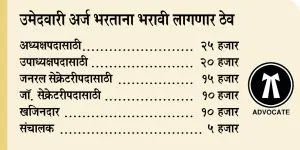 उमेदवारी अर्ज भरताना भरावी लागणार ठेव
अध्यक्षपदासाठी........................ २५ हजार
उपाध्यक्षपदासाठी..................... २० हजार
जनरल सेक्रेटरीपदासाठी ............ १५ हजार
जॉ. सेक्रेटरीपदासाठी ............... १० हजार
खजिनदार ............................. १० हजार
संचालक ............................... ५ हजार
ADVOCATE